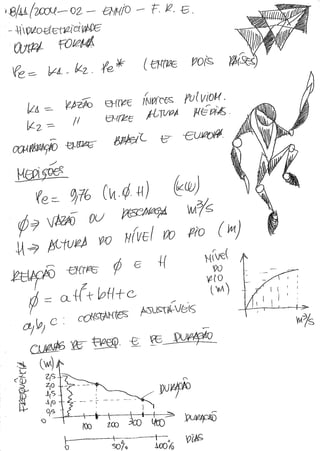 18/11/2004-02 - ENNIO - F. R. E.
- HIDROELETRICIDADE
OUTRA FORMA
Pe = k1 . k2 . Pe* (ENTRE DOIS PAÍSES)
k1 = RAZÃO ENTRE ÍNDICES PULVIOM.
k2 = " ENTRE ALTURA MÉDIAS.
COMPARAÇÃO ENTRE BRASIL E EUROPA
MEDIÇÕES
Pe = 9,76 (η.φ.H) (kW)
φ ⇒ VAZÃO OU DESCARGA m³/s
H ⇒ ALTURA DO NÍVEL DO RIO (m)
RELAÇÃO ENTRE φ E H
φ = aH² + bH + c
a,b,c : CONSTANTES AJUSTÁVEIS
NÍVEL
DO
RIO
(m)
m³/s
CURVAS DE FREQ. E DE DURAÇÃO
FREQUÊNCIA
(m)
2,5
2,0
1,5
1,0
0,5
0
100 200 300 400
DURAÇÃO
DURAÇÃO
DIAS
0 50% 100%